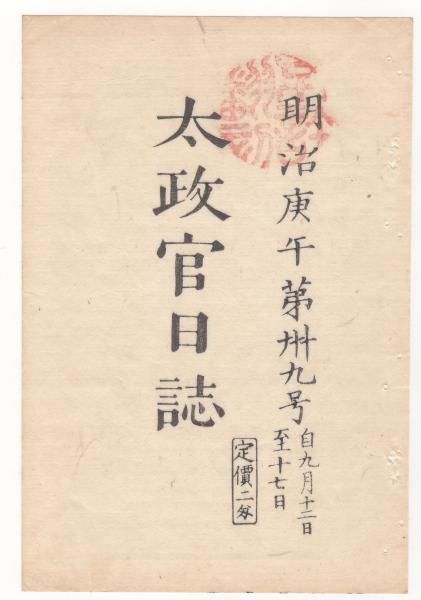 明治庚午第卅九号
自九月十二日
至十七日
太政官日誌
定價二匁